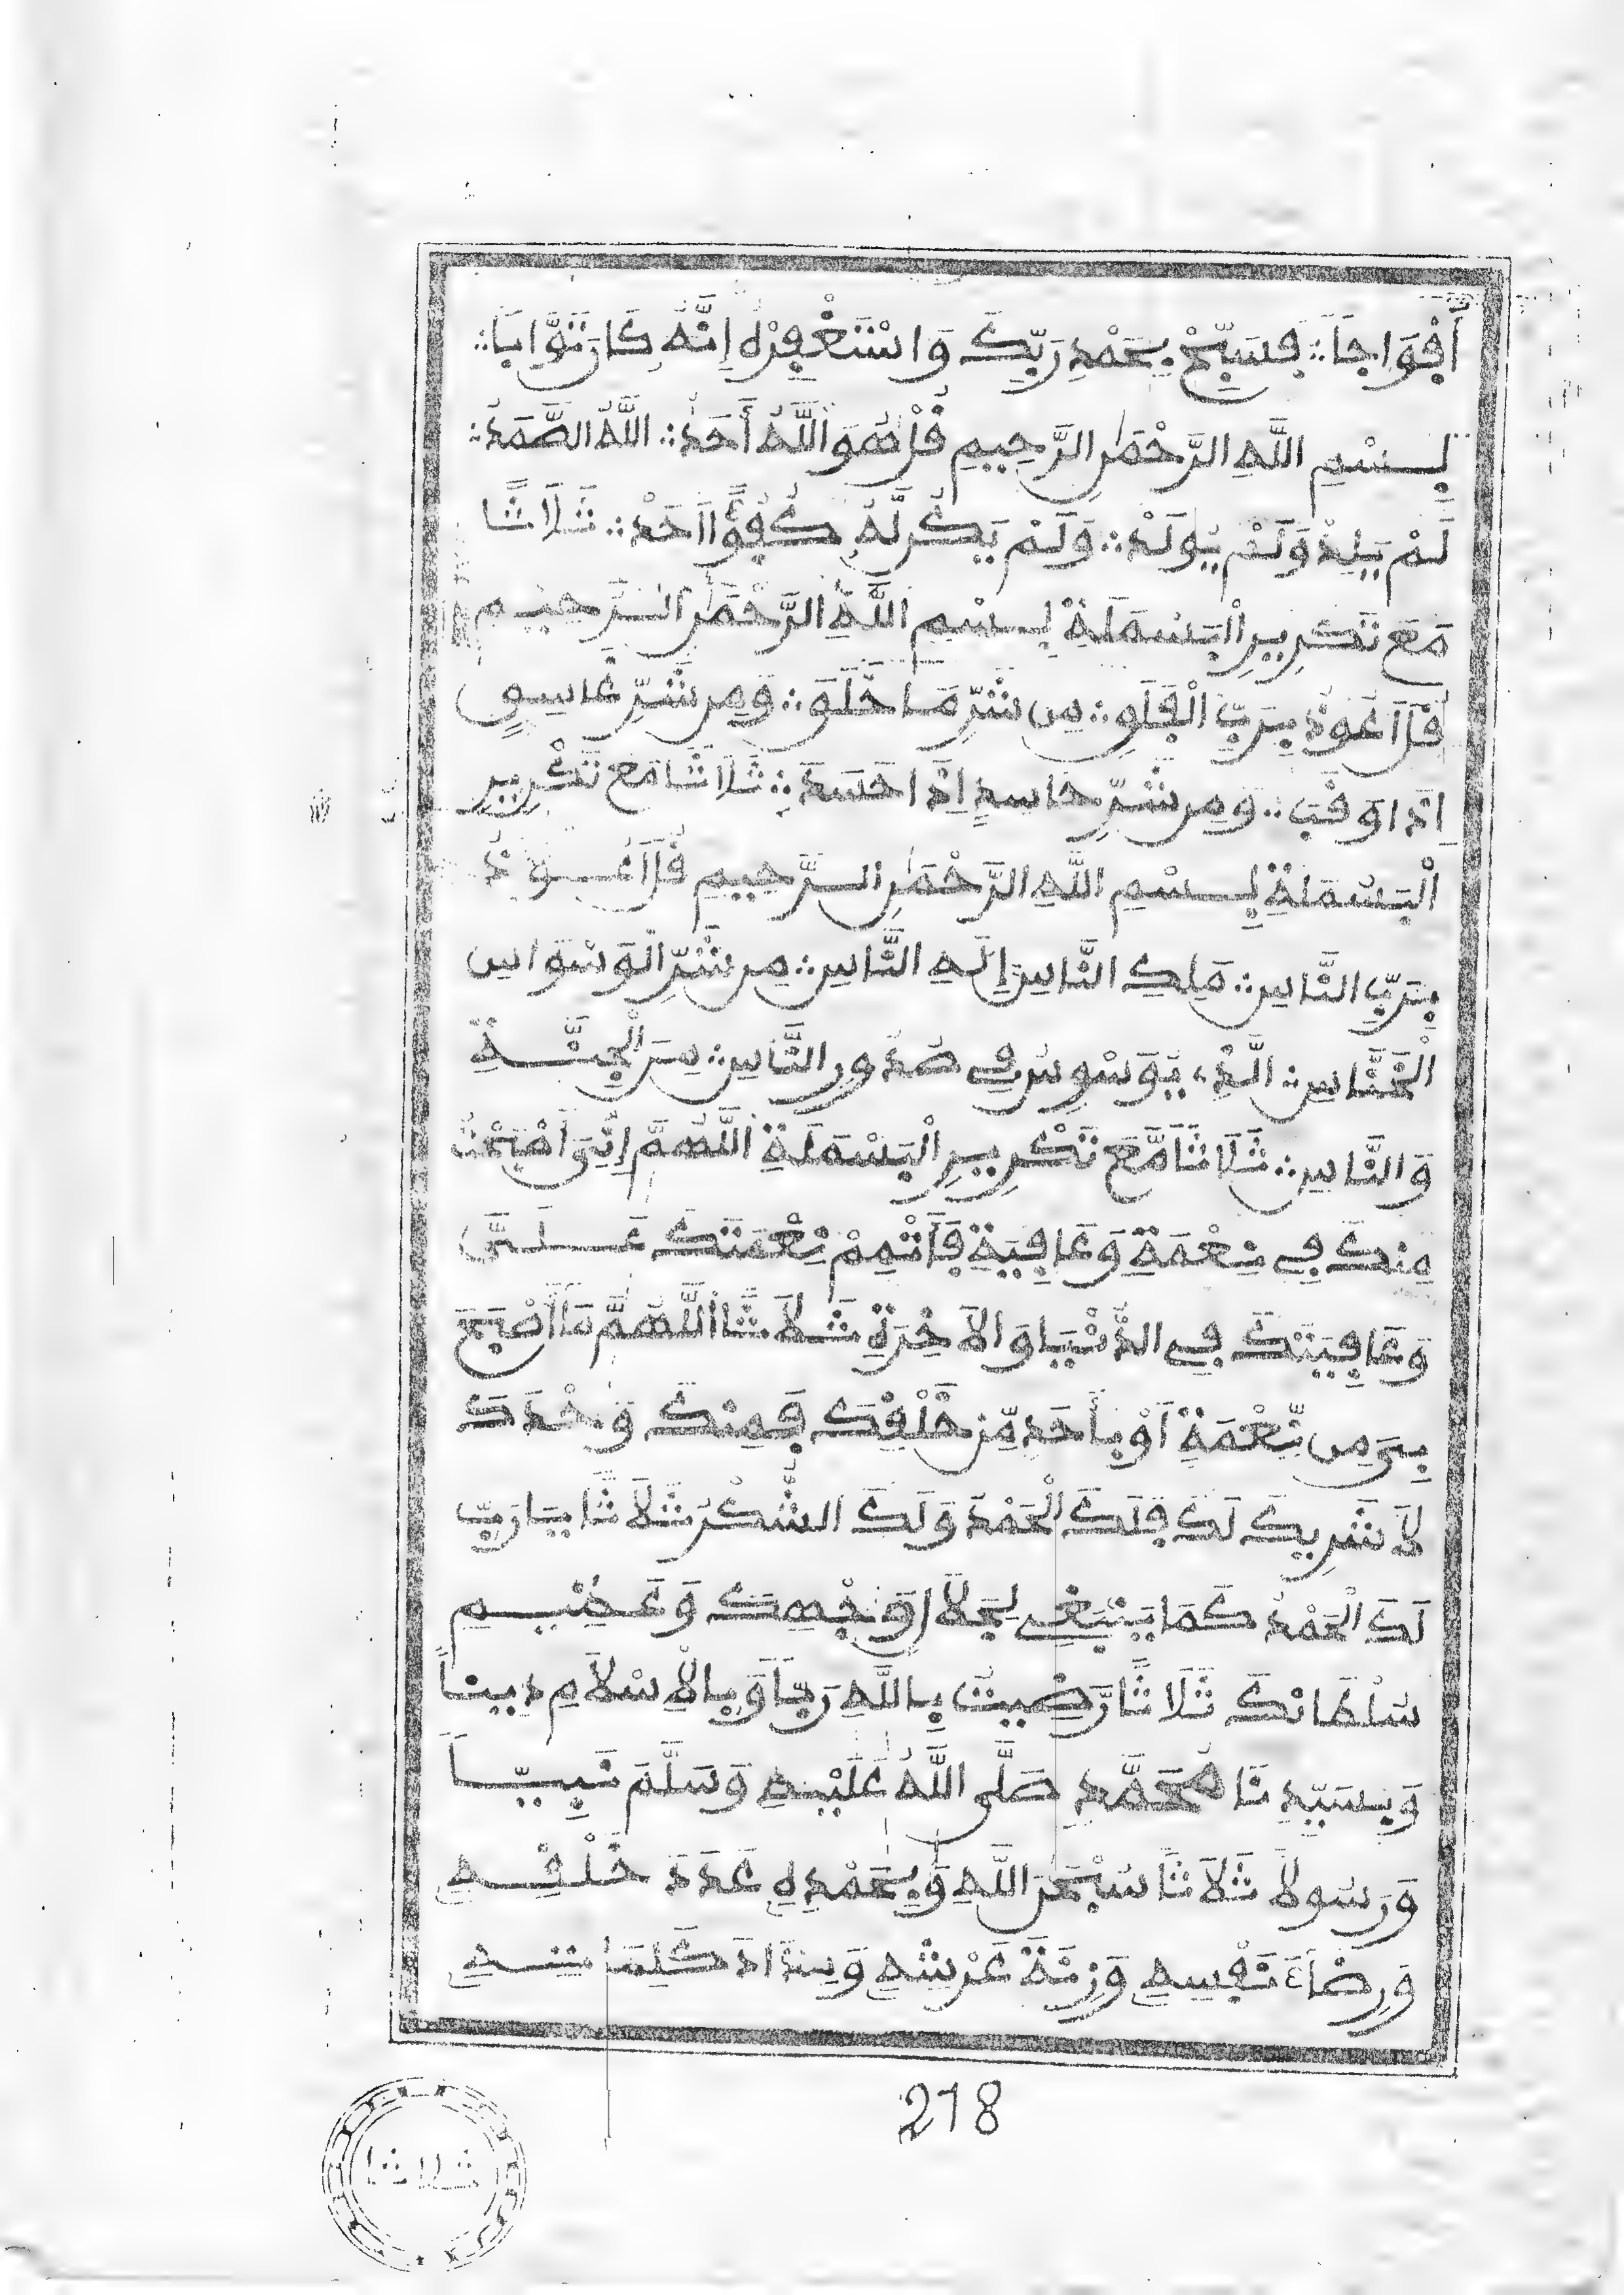 أَفْوَاجاً ∴ فَسَبِّحْ بِحَمْدِ رَبِّكَ وَاسْتَغْفِرْهُ إِنَّهُ كَانَ تَوَّاباً ∴
بِسْمِ اللَّهِ الرَّحْمَنِ الرَّحِيمِ قُلْ هُوَ اللَّهُ أَحَدٌ ∴ اللَّهُ الصَّمَدُ ∴
لَمْ يَلِدْ وَلَمْ يُولَدْ ∴ وَلَمْ يَكُن لَّهُ كُفُؤاً اَحَدٌ ∴ ثَلَاثاً
مَعَ تَكْرِيرِ الْبَسْمَلَةِ بِسْمِ اللَّهِ الرَّحْمَنِ الرَّحِيمِ
قُلَ اَعُوذُ بِرَبِّ الْفَلَقِ ∴ مِن شَرِّ مَا خَلَقَ ∴ وَمِن شَرِّ غَاسِقٍ
اِذَا وَقَبَ ∴ وَمِن شَرِّ حَاسِدٍ اِذَا حَسَدَ ∴ ثَلَاثاً مَعَ تَكْرِيرِ
الْبَسْمَلَةِ بِسْمِ اللَّهِ الرَّحْمَنِ الرَّحِيمِ قُلَ اَعُوذُ
بِرَبِّ النَّاسِ ∴ مَلِكِ النَّاسِ إِلَهِ النَّاسِ ∴ مِن شَرِّ الْوَسْوَاسِ
الْخَنَّاسِ ∴ الَّذِي يُوَسْوِسُ فِي صُدُورِ النَّاسِ ∴ مِنَ الْجِنَّةِ
وَالنَّاسِ ∴ ثَلَاثاً مَّعَ تَكْرِيرِ الْبَسْمَلَةِ اللَّهُمَّ إِنِّي أَصْبَحْتُ
مِنْكَ فِي نِعْمَةٍ وَعَافِيَةٍ فَأَتْمِمْ نِعْمَتَكَ عَلَيَّ
وَعَافِيَتَكَ فِي الدُّنْيَا وَالآخِرَةِ ثَلَاثاً اللَّهُمَّ مَا أَصْبَحَ
بِي مِن نِّعْمَةٍ أَوْ بِأَحَدٍ مِّنْ خَلْقِكَ فَمِنْكَ وَحْدَكَ
لَا شَرِيكَ لَكَ فَلَكَ الْحَمْدُ وَلَكَ الشُّكْرُ ثَلَاثاً يَا رَبِّ
لَكَ الْحَمْدُ كَمَا يَنْبَغِي لِجَلَالِ وَجْهِكَ وَعَظِيمِ
سُلْطَانِكَ ثَلَاثاً رَّضِيتُ بِاللَّهِ رَبّاً وَبِالْإِسْلَامِ دِيناً
وَبِسَيِّدِنَا مُحَمَّدٍ صَلَّى اللَّهُ عَلَيْهِ وَسَلَّمَ نَبِيّاً
وَرَسُولاً ثَلَاثاً سُبْحَنَ اللَّهِ وَبِحَمْدِهِ عَدَدَ خَلْقِهِ
وَرِضَاءَ نَفْسِهِ وَزِنَةَ عَرْشِهِ وَمِدَادَ كَلِمَاتِهِ
218
ثلاثا